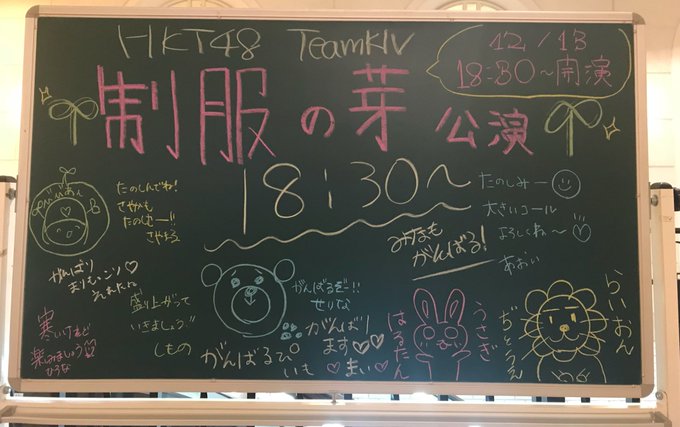 HKT48 TeamKIV
12/13
18:30～開演
制服の芽 公演
18:30～
たのしんでね！
さやかも
たのしむー!!
さやまる
たのしみー
大きいコール
よろしくねー
あおい
みなもも
がんばる！
がんばり
まりもっこり♡
盛り上がって
いきましょう
しもの
寒いけれど
楽しみましょう
ひろな
がんばるぞ!!
せりな
がんばるぴ
いも
がんばり
ます♡♡
♡まい♡
うさぎ
はるたん
らいおん
ぢょうえ